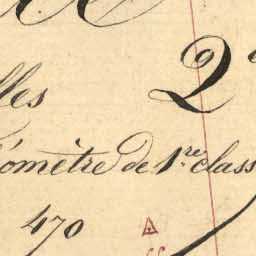 lles 2e
éomètre de 1re class
470